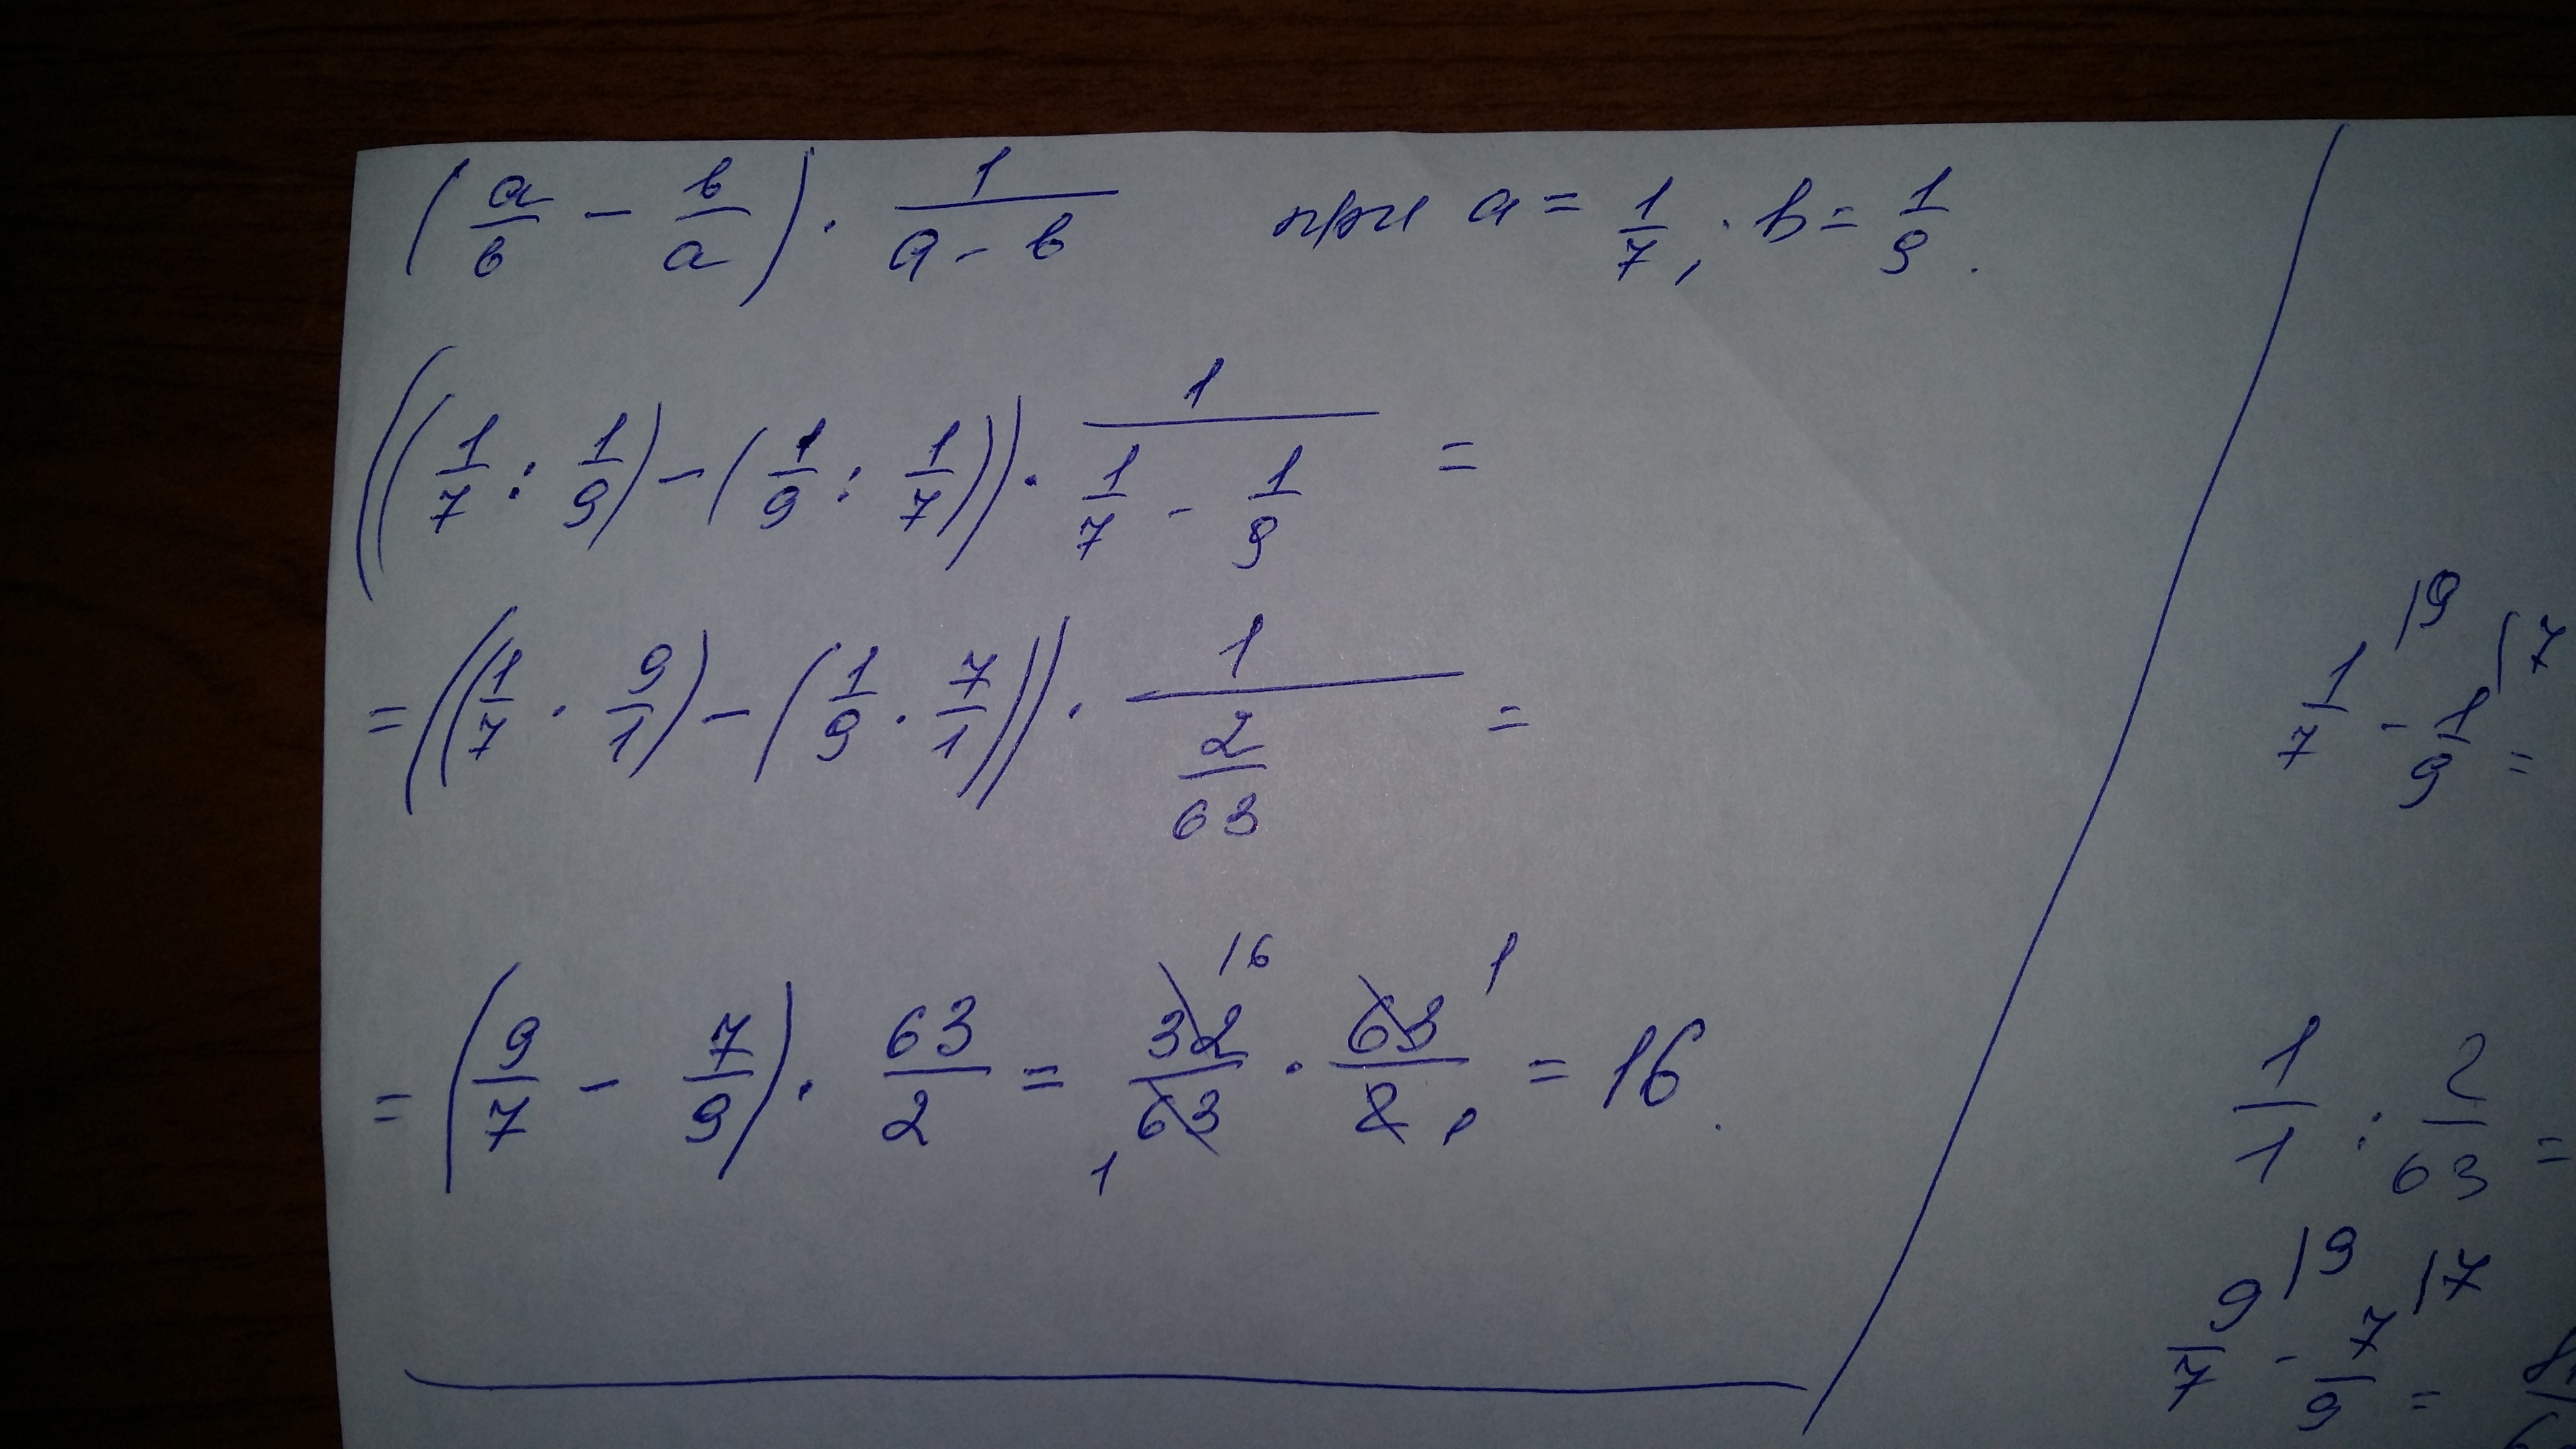 (a/b - b/a) · 1/(a - b) при a = 1/7; b = 1/9.
((1/7 : 1/9) - (1/9 : 1/7)) · 1/(1/7 - 1/9) =
= ((1/7 · 9/1) - (1/9 · 7/1)) · 1/(2/63) =
= (9/7 - 7/9) · 63/2 = 32/63 · 63/2 = 16.
16 1
1 1
1/7 |9 - 1/9 |7 =
1/1 : 2/63 =
9/7 |9 - 7/9 |7 =